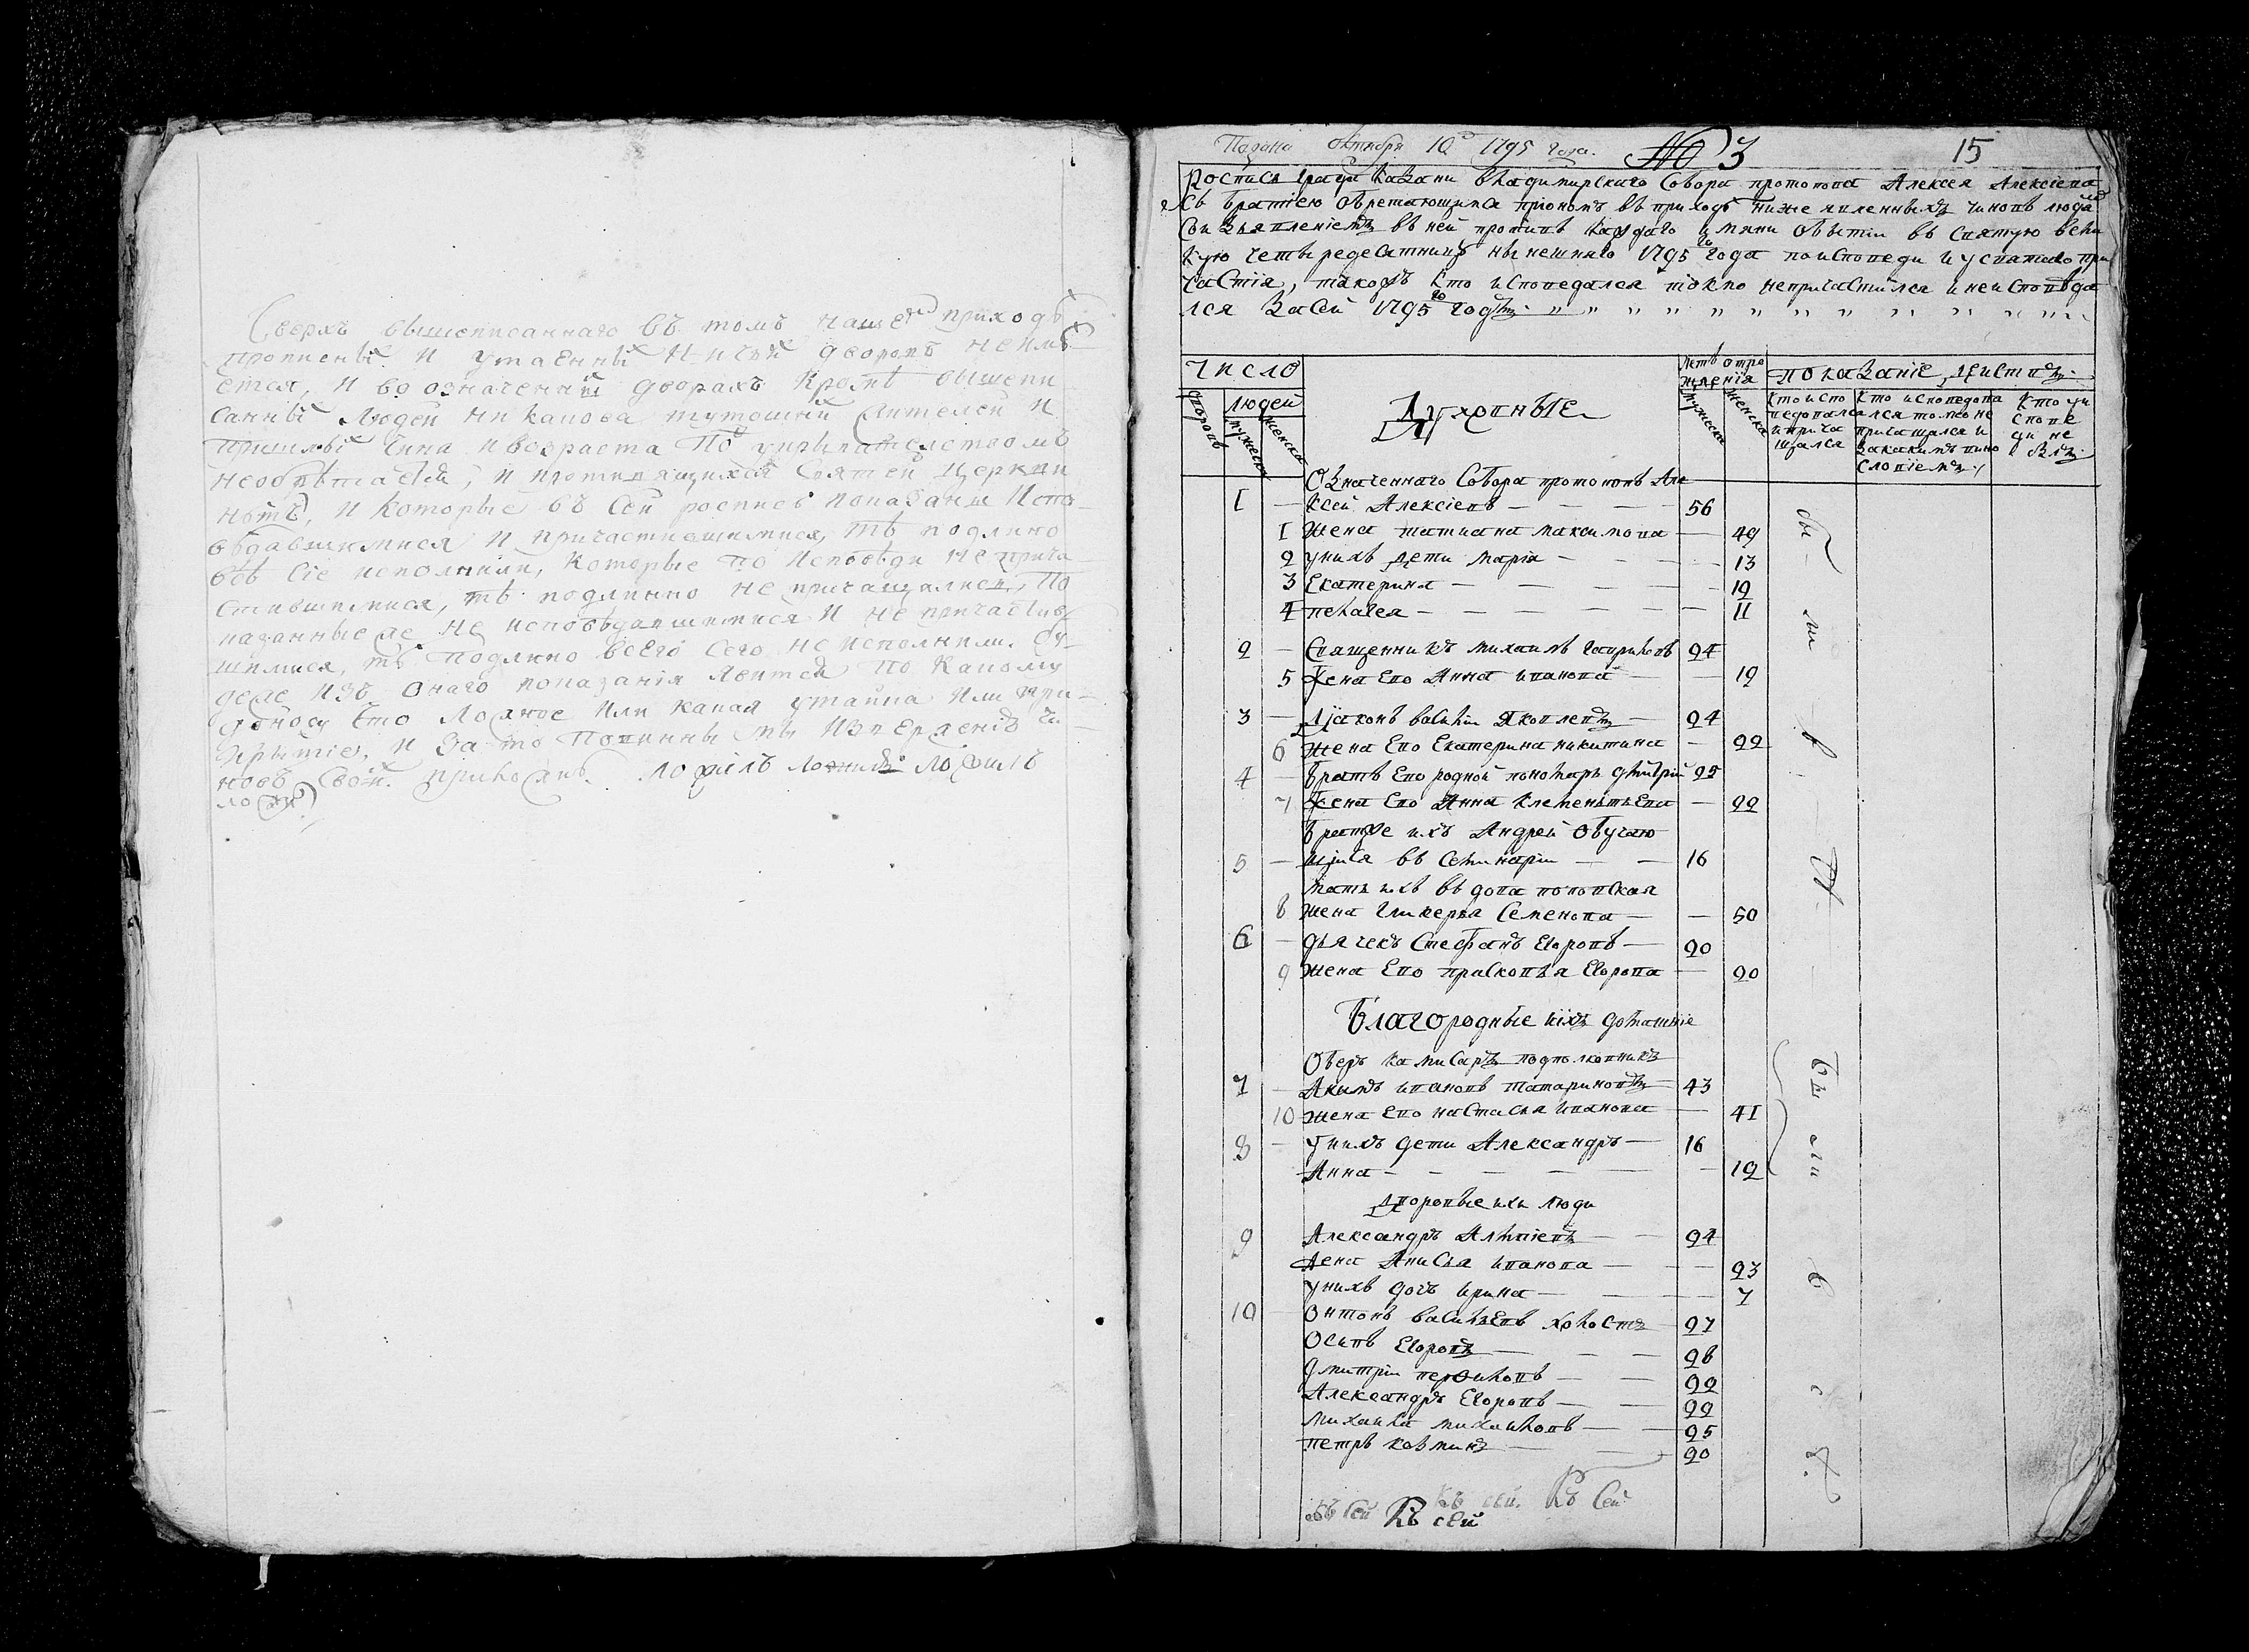 Сверхъ вышеписаннаго въ томъ нашемъ приходѣ
прописных и утаенных ни чьих дворовъ не имѣ
ется, и во означенных дворахъ кромѣ вышепи
санных людей никакова тутошних жителей и
пришлых чина и возраста по укрывательствомъ
необрѣтается, и противящихся святей церкви
нѣтъ, и которые въ сей росписѣ показаны испо
вѣдавшимися и причастившимися, тѣ подлинно
всѣ сіе исполнили, которые по исповѣди не прича
стившимися, тѣ подлинно не причащались, по
казанные же не исповѣдавшимися и не причастив
шимися, тѣ подлинно всего сего не исполнили. бу
деже изъ онаго показанія явится по какому
доносу что ложное или какая утайка или при
крытіе, и за то повинны мы изверженію чи
новъ своих.
Подана октября 10д 1795 года. № 3 15
Роспись града Казани Владимирскаго Собора протопопа Алексея Алексіева
съ братіею обретающимся при ономъ въ приходѣ нижеявленныхъ чиновъ людем
со изъявленіемъ въ ней противъ каждаго имяни о бытіи въ святую вели
кую четыредесятницу нынешняго 1795го года на исповеди и у святаго при
частія, такожъ кто исповедался токмо не причастился и не исповѣда
лся за сей 1795го годъ
Число
Духовные
летъ отро
жденія
показаніе действъ
дворовъ
людей
мужеска
женска
мужеска
женска
кто испо
ведовался
и прича
щался
кто исповедова
лся токмо не
причащался и
за какимъ вино
словіемъ
кто у и
спове
ди не
былъ
Означеннаго Собора протопопъ Але
1 — ксей Алексіевъ — 56
1 жена татиана максимова — 49
2 у нихъ дети Марія — 13
3 Екатерина — 12
4 пелагея — 11
2 — Священникъ михаилъ гавриловъ 24
5 жена его Анна иванова — 19
3 — Діаконъ василіи Яковлевъ — 24
6 жена его Екатерина никитина — 22
4 — братъ его родной пономарь дмитрій 25
7 жена его Анна Клементьева — 22
братже ихъ Андрей обучаю
5 — щійся въ семинаріи — 16
мать ихъ вдова поповская
8 жена гликерья Семенова — 50
6 — дьячекъ Стефанъ Егоровъ — 20
9 жена его прасковья Егорова — 20
Благородные и ихъ домашніе
Оберъ камисаръ подполковникъ
7 — Акимъ ивановъ татариновъ — 43
10 жена его настасья иванова — 41
8 — у нихъ дети Александръ — 16
Анна — 12
Дворовые ихъ люди
9 Александръ Алимпіевъ — 24
жена Анисья иванова — 23
у нихъ дочь ирина — 7
10 Онтонъ васильевъ холостъ 27
Осипъ Егоровъ — 28
Дмитріи перфиловъ — 22
Александръ Егоровъ — 22
михаила михаиловъ — 25
петръ козминъ — 20
къ сей къ сей. Къ Сей
Къ сей